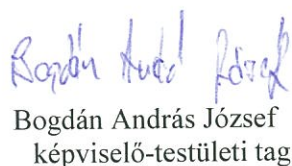 Bogdán András József
Bogdán András József
képviselő-testületi tag